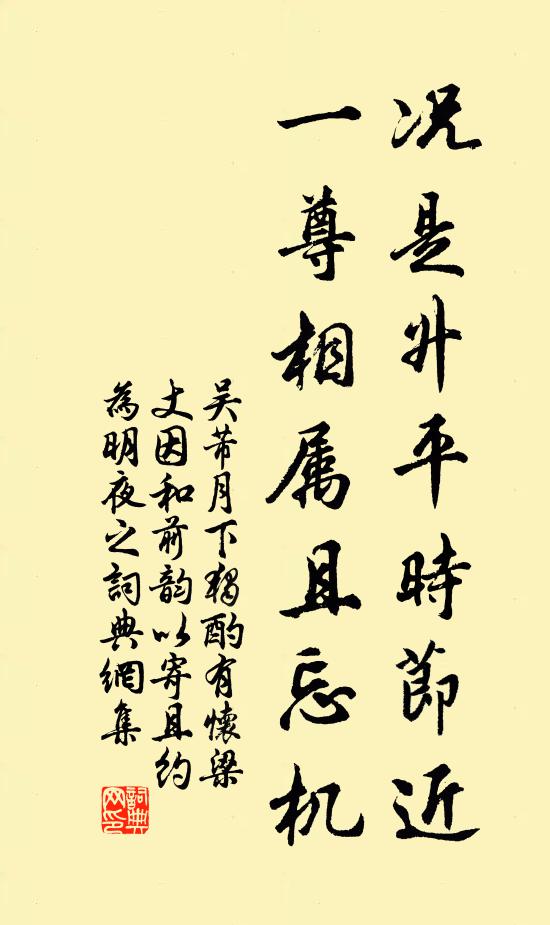 况是升平時節近
一尊相属且忘机
吴芾月下獨酌有懷梁
丈因和前韵以寄且約
為明夜之詞典網集
詞典網印